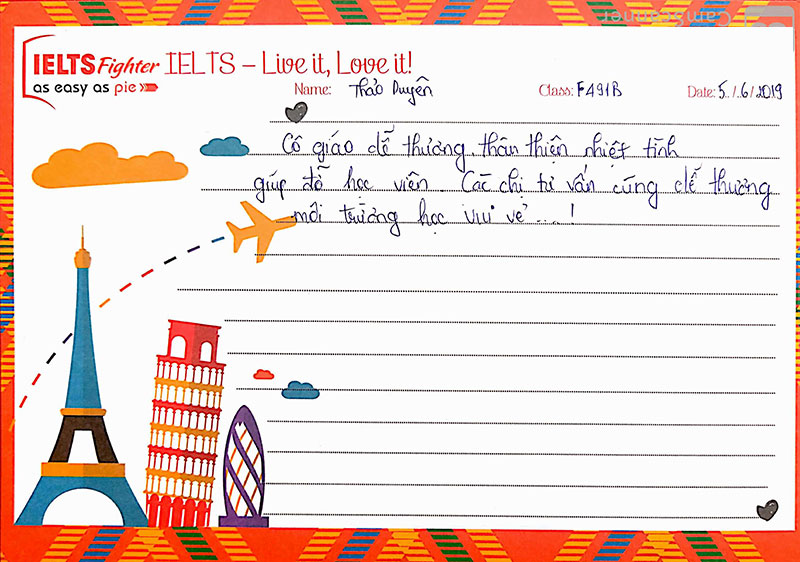 CamScanner
IELTS Fighter IELTS – Live it, Love it!
as easy as pie
Name: Thảo Duyên Class: F491B Date: 5../.6/2019
Cô giáo dễ thương, thân thiện nhiệt tình
giúp đỡ học viên. Các chị tư vấn cũng dễ thương
môi trường học vui vẻ....!